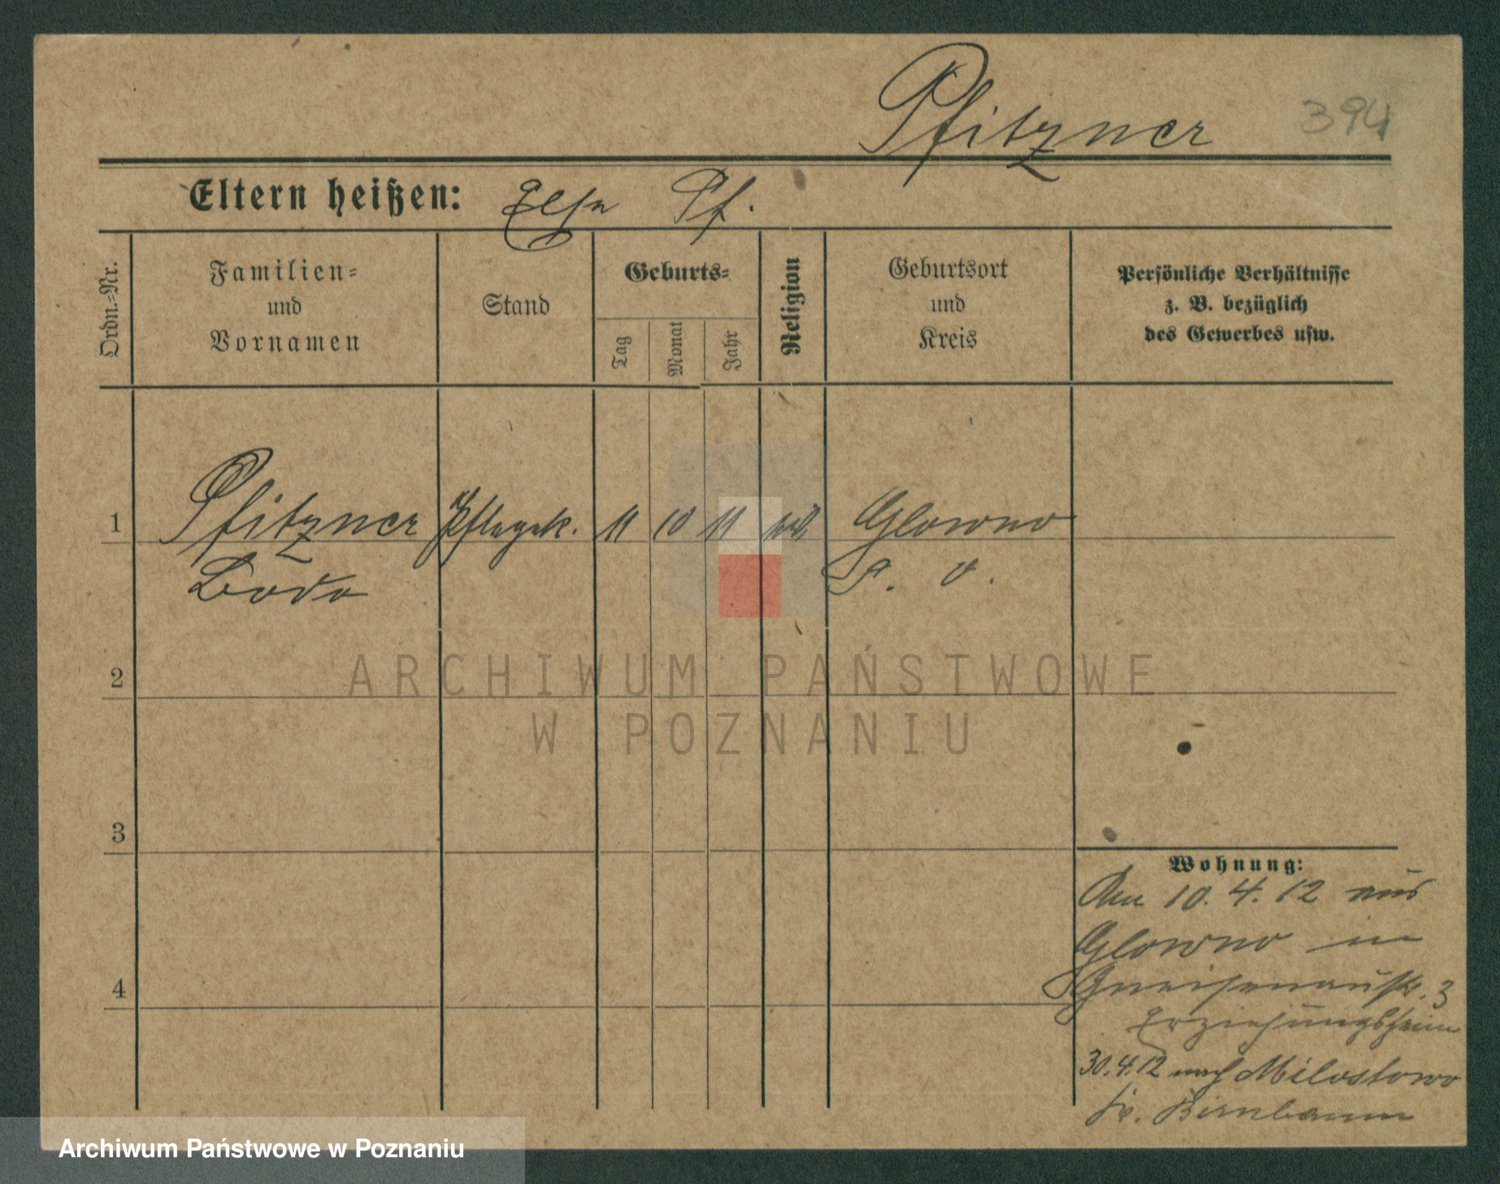 Pfitzner 394
Eltern heißen: Elsa Pf.
Ordn.=Nr.
Familien=
und
Vornamen
Stand
Geburts=
Tag
Monat
Jahr
Religion
Geburtsort
und
Kreis
Persönliche Verhältnisse
z. B. bezüglich
des Gewerbes usw.
1 Pfitzner Pflegek. 11 10 11 Glowno
Bodo P. O.
2
3
4
Wohnung:
Am 10. 4. 12 aus
Glowno in
Gneisenaustr. 3
Erziehungsheim
30.4.12 nach Milostowo
Kr. Birnbaum
ARCHIWUM PAŃSTWOWE
W POZNANIU
Archiwum Państwowe w Poznaniu